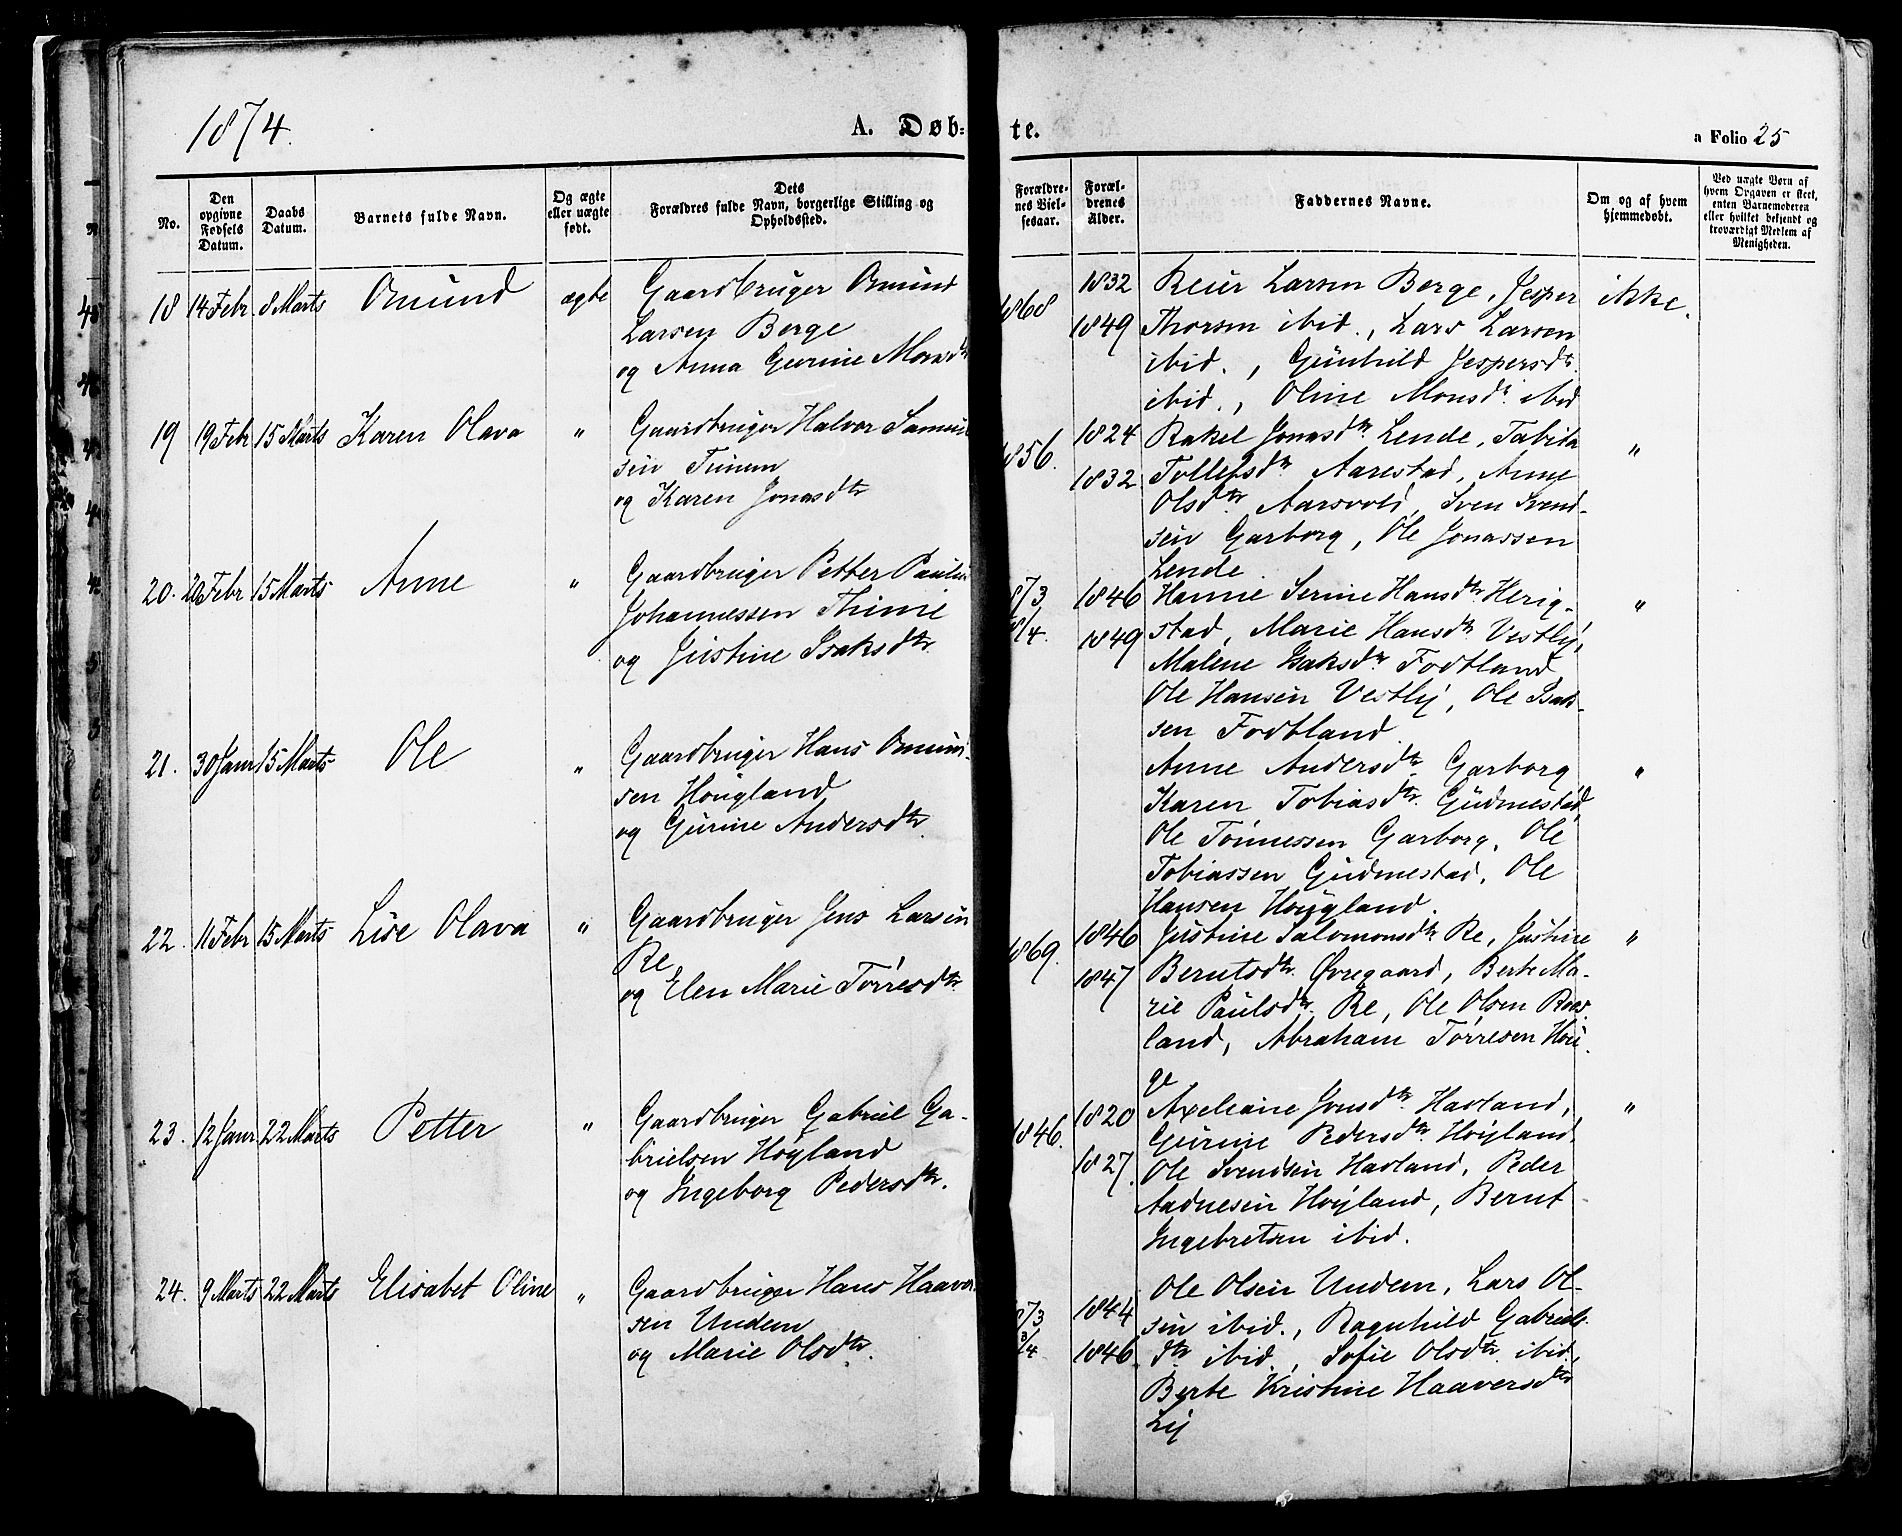 1874.
A. Døb-
te.
a Folio 25
No.
Den
opgivne
Fødsels
Datum.
Daabs
Datum.
Barnets fulde Navn.
Og ægte
eller uægte
født.
Dets
Forældres fulde Navn, borgerlige Stilling og
Opholdssted.
Forældre-
nes Viel-
sesaar.
Foræl-
drenes
Alder.
Faddernes Navne.
Om og af hvem
hjemmedøbt.
Ved uægte Børn af
hvem Opgaven er skeet,
enten Barnemoderen
eller hvilket bekjendt og
troværdigt Medlem af
Menigheden.
18 14 Febr 8 Marts Omund ægte
Gaardbruger Omund
Larsen Berge
og Anna Gurine Monsdtr
1868
1832
1849
Reier Larsen Berge, Jesper
Thorsen ibid., Lars Larsen
ibid., Gunhild Jespersdtr
ibid., Oline Monsdtr ibid
ikke.
19 19 Febr 15 Marts Karen Olava "
Gaardbruger Halvor Samuel
sen Tunem
og Karen Jonasdtr
1856.
1824
1832
Rakel Jonasdtr Lende, Tabita
Tollefsdtr Aarestad, Anne
Olsdtr Aarsvold, Sven Svend-
sen Garborg, Ole Jonassen
Lende.
"
20. 20 Febr 15 Marts Anne "
Gaardbruger Petter Paulus
Johannessen Thime
og Justine Isaksdtr
73
/4.
1846
1849
Hanne Serine Hansdtr Herig-
stad, Marie Hansdtr Vestly,
Malene Isaksdtr Fodtland
Ole Hansen Vestly, Ole Isak-
sen Fodtland
"
21. 30 Janr 15 Marts Ole "
Gaardbruger Hans Omund-
sen Høugland
og Gurine Andersdtr.
Anne Andersdtr Garborg
Karen Tobiasdtr. Gudmestad
Ole Tønnessen Garborg, Ole
Tobiassen Gudmestad, Ole
Hansen Høugland.
"
22. 11 Febr 15 Marts Lise Olava "
Gaardbruger Jens Larsen
Re
og Elen Marie Tørresdtr
1869.
1846
1847
Justine Salomonsdtr Re, Justine
Berntsdtr. Øvregaard, Berte Ma-
rie Paulsdtr. Re, Ole Olsen Ros-
land, Abraham Tørresen Hau-
ge
"
23. 12 Janr 22 Marts Petter "
Gaardbruger Gabriel Ga-
brielsen Høyland
og Ingeborg Pedersdtr.
1846.
1820
1827.
Axeliane Jonsdtr. Havland,
Gurine Pedersdtr. Høyland.
Ole Svendsen Havland, Peder
Aadnesen Høyland, Bernt
Ingebretsen ibid.
"
24. 9 Marts 22 Marts Elisabet Oline "
Gaardbruger Hans Haavor
sen Undem
og Marie Olsdtr.
73
3/4
1844
1846
Ole Olsen Undem, Lars Ol-
sen ibid., Ragnhild Gabriels
dtr ibid., Sofie Olsdtr. ibid,
Berte Kristine Haaversdtr
Ly